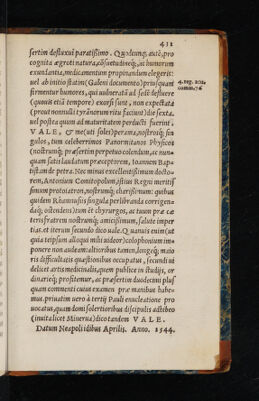 431
sertim defluxui paratissimo. Quodcunq; autē, pro
cognita ægroti natura, cōsuetudineq́;, ac humorum
exundantia, medicamentum propinandum elegeris:
uel ab initio statim (Galeni documento) priusquam
firmentur humores, qui uulneratū ad
(quouis etiā tempore) exorsi sunt, non expectata
(prout nonnulli tyrānorum ritu faciunt) die sexta.
uel postea quam ad maturitatem perducti fuerint,
VALE, & me (uti soles) perama, nostrosq́; sin
gulos, tum celeberrimos Panormitanos Physicos
(nostrumq́; præsertim perpetuo colendum, ac nun-
quam satis laudatum præceptorem, Ioannem Bap-
tistam de petra. Nec minus excellentissimum docto-
rem, Antonium Comitopolum, istius Regni meritis
simum protoiatron, nostrumq́; charissimum: quibus
quidem Rhamnusijs singula perlibranda corrigen-
daq́;
teris fratrem nostrumq́; amicissimum, salute imper
tias. et iterum secundo dico uale. Quamuis enim (ut
quia teipsum alloqui mihi uideor) colophonium im-
ponere non audeam: altioribus tamen, longeq́; maio
ris difficultatis quæstionibus occupatus, secundi ui
delicet artis medicinalis, quem publice in studijs, or
dinarieq́; profitemur, ac præsertim duodecimi plus
quam commenti cuius examen præ manibus habe-
mus. priuatim uero à tertij Pauli enucleatione pro
uocatus, quam domi solertioribus discipulis adhibeo
(inuita licet Minerua) dicotandem VALE.
Datum Neapoli idibus Aprilis. Anno. 1544.